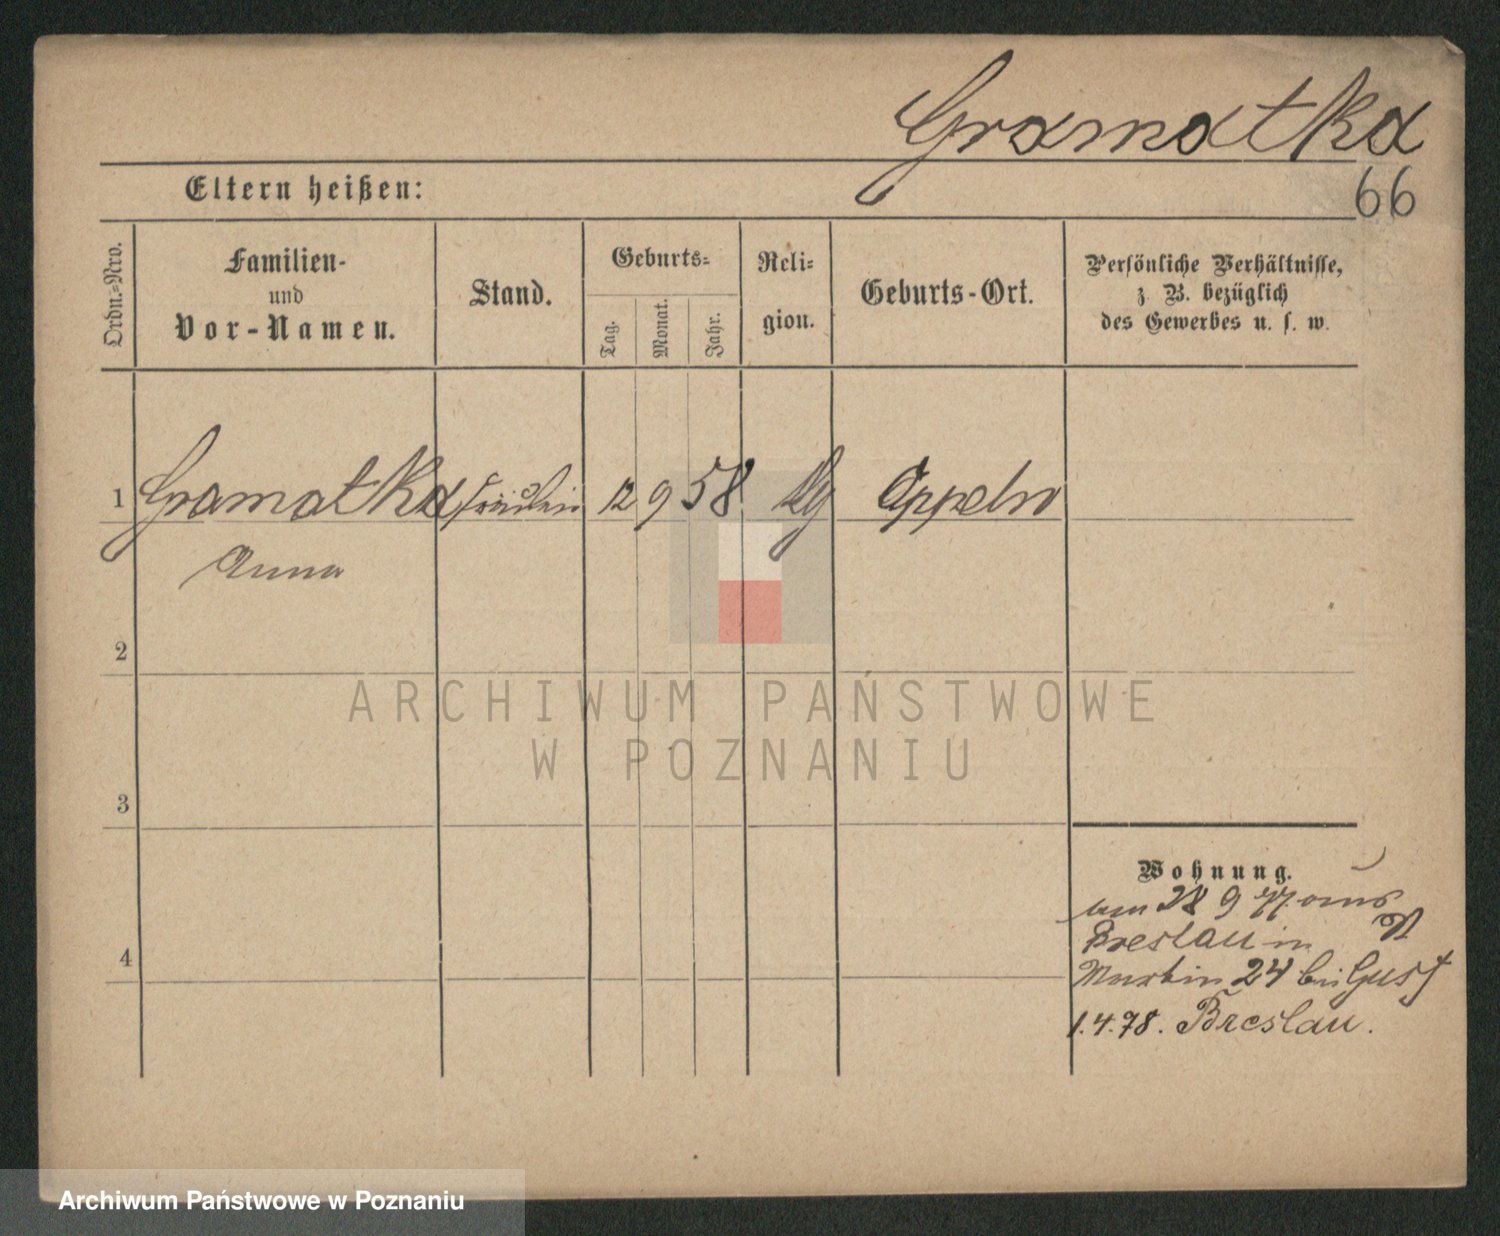 Gramatka
Eltern heißen:
66
Ordn.=Nro.
Familien-
und
Vor-Namen.
Stand.
Geburts=
Tag.
Monat.
Jahr.
Reli=
gion.
Geburts-Ort.
Persönliche Verhältnisse,
z. B. bezüglich
des Gewerbes u. s. w.
1 Gramatka Fräulein 12 9 58 Oppeln
Anna
2
ARCHIWUM PAŃSTWOWE
W POZNANIU
3
Wohnung.
28 9 77 aus
Breslau in
Martin 24 bei Gust
4
1.4.78. Breslau.
Archiwum Państwowe w Poznaniu